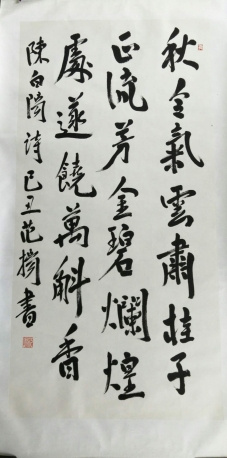 秋令氣雲肅桂子
正流芳金碧爛煌
處遂饒萬斛香
陳白陽詩己丑范撝書